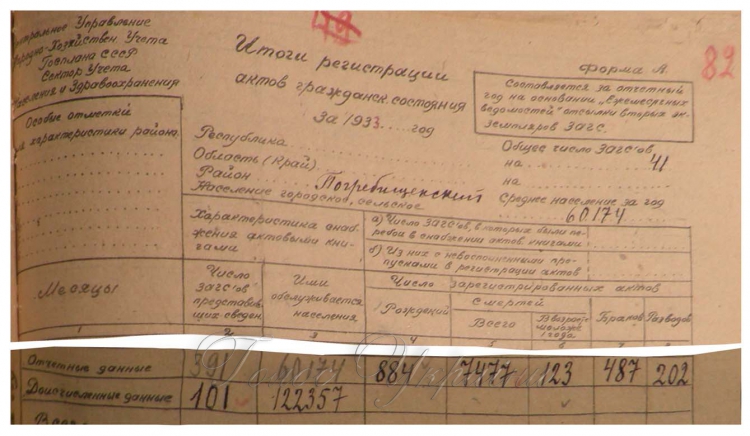 Центральное Управление
Народно-Хозяйствен. Учета
Госплана СССР
Сектор Учета
Населения и Здравоохранения
Особые отметки
и характеристики района
Итоги регистрации
актов гражданск. состояния
За 1933 год
Республика
Область (Край)
Район Погребищенский
Население городское, сельское
Форма А.
82
Составляется за отчетный
год на основании „Ежемесячных
ведомостей" отсылки вторых эк-
земпляров ЗАГС.
Общее число ЗАГС'ов
на 41
на
Среднее население за год
60174
Характеристика снаб-
жения актовыми кни-
гами
а) Число ЗАГС'ов, в которых были пе-
ребои в снабжении актов. книгами
б) Из них с невосполненными про-
пусками в регистрации актов
Месяцы
Число
ЗАГС'ов
представив-
щих сведен.
Ими
обслуживается
населения
Число зарегистрированных актов
Рождений
Смертей
Всего
В возрасте
моложе
1 года
Браков
Разводов
1 2 3 4
Отчетные данные 391 60174 884 7477 123 487 202
Доисчисленные данные 101 122357
Всего